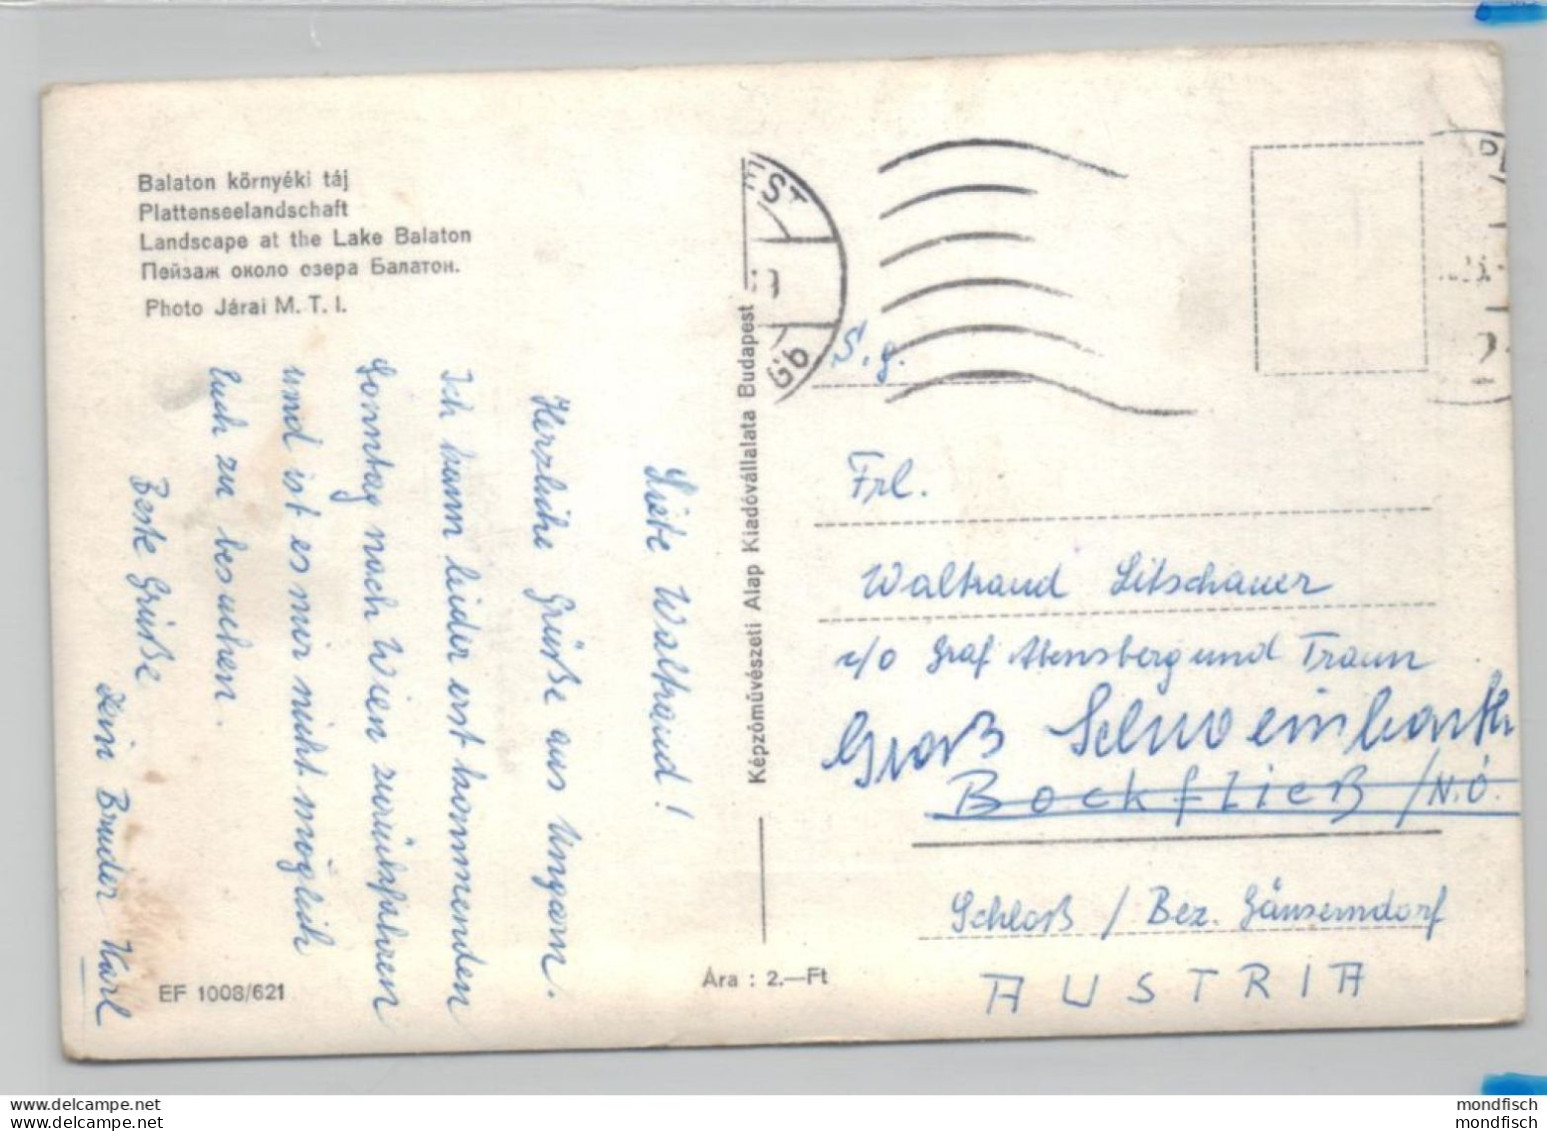 Balaton környéki táj
Plattenseelandschaft
Landscape at the Lake Balaton
Пейзаж около озера Балатон.
Photo Járai M. T. I.
Liebe Waltraud!
Herzliche Grüße aus Ungarn.
Ich kann leider erst kommenden
Sonntag nach Wien zurückfahren
und ist es mir nicht möglich
Euch zu besuchen.
Beste Grüße
Dein Bruder Karl
EF 1008/621
Ára : 2.—Ft
Képzőművészeti Alap Kiadóvállalata Budapest
S. g.
Frl.
Waltraud Litschauer
c/o Graf Abensberg und Traun
Groß Schweinbarth
Bockfließ /N.Ö.
Schloß / Bez. Gänserndorf
AUSTRIA
delcampe.net
mondfisch
delcampe.net
mondfisch